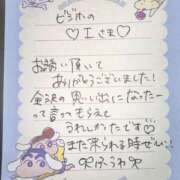 ビジホの
♡Iさま♡
お誘い頂いて
ありがとうございました!
金沢の思い出になったー
って言ってもらえて
うれしかったです♡
また来られる時ぜひ!!